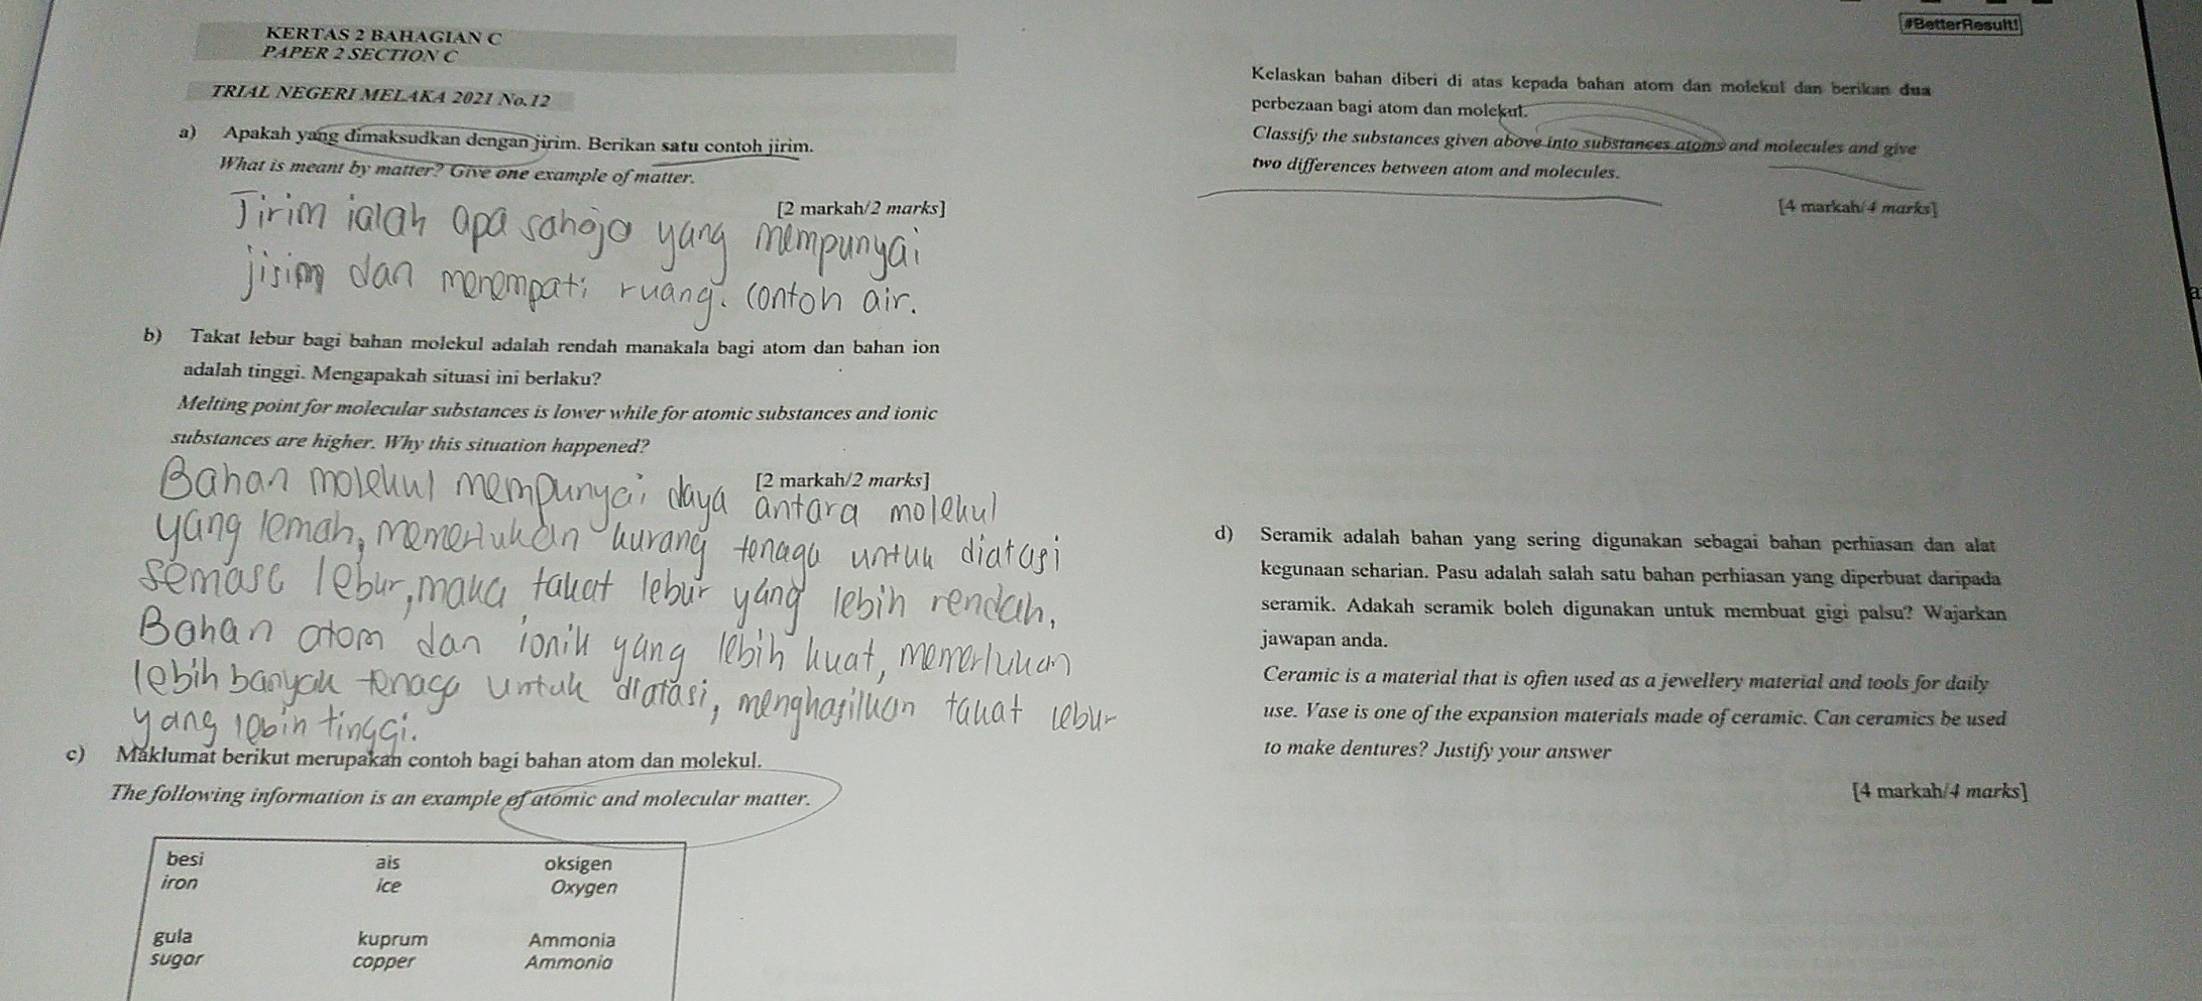 KERTAS 2 BAHAGIAN C
PAPER 2 SECTION C
TRIAL NEGERI MELAKA 2021 No.12
a) Apakah yang dimaksudkan dengan jirim. Berikan satu contoh jirim.
What is meant by matter? Give one example of matter.
[2 markah/2 marks]
Jirim ialah apa sahaja yang mempunyai
jisim dan menempati ruang. contoh air.
b) Takat lebur bagi bahan molekul adalah rendah manakala bagi atom dan bahan ion
adalah tinggi. Mengapakah situasi ini berlaku?
Melting point for molecular substances is lower while for atomic substances and ionic
substances are higher. Why this situation happened?
[2 markah/2 marks]
Bahan molekul mempunyai daya antara molekul
yang lemah, memerlukan kurang tenaga untuk diatasi
semasa lebur, maka takat lebur yang lebih rendah,
Bahan atom dan ionik yang lebih kuat, memerlukan
lebih banyak tenaga untuk diatasi, menghasilkan takat lebur
yang lebih tinggi.
c) Maklumat berikut merupakan contoh bagi bahan atom dan molekul.
The following information is an example of atomic and molecular matter.
besi ais oksigen
iron ice Oxygen
gula kuprum Ammonia
sugar copper Ammonia
#BetterResult!
Kelaskan bahan diberi di atas kepada bahan atom dan molekul dan berikan dua
perbezaan bagi atom dan molekul.
Classify the substances given above into substances atoms and molecules and give
two differences between atom and molecules.
[4 markah/4 marks]
d) Seramik adalah bahan yang sering digunakan sebagai bahan perhiasan dan alat
kegunaan scharian. Pasu adalah salah satu bahan perhiasan yang diperbuat daripada
seramik. Adakah seramik boleh digunakan untuk membuat gigi palsu? Wajarkan
jawapan anda.
Ceramic is a material that is often used as a jewellery material and tools for daily
use. Vase is one of the expansion materials made of ceramic. Can ceramics be used
to make dentures? Justify your answer
[4 markah/4 marks]